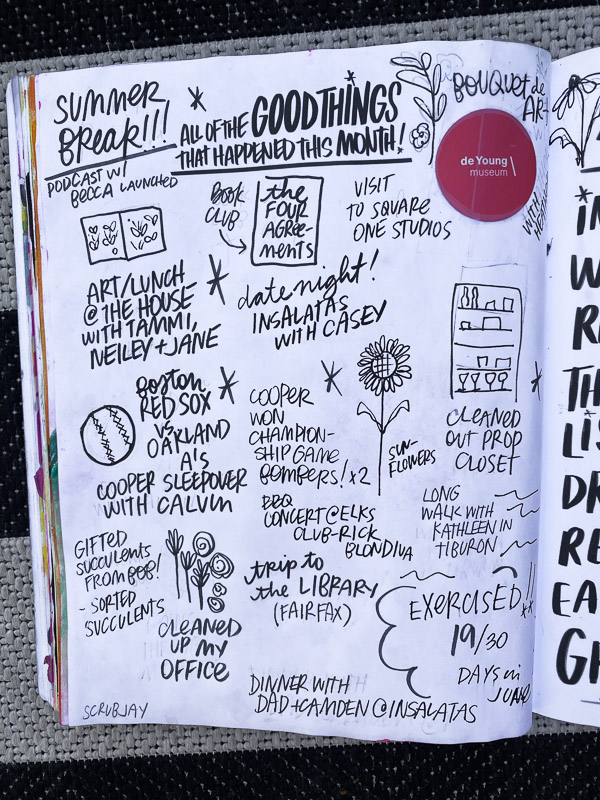 SUMMER
BREAK!!!
ALL OF THE GOOD THINGS
THAT HAPPENED THIS MONTH!
BOUQUET de
AR-
de Young
museum
PODCAST W/
BECCA LAUNCHED
BOOK
CLUB
the
FOUR
AGREE-
MENTS
VISIT
TO SQUARE
ONE STUDIOS
WITH
ART/LUNCH
@ THE HOUSE
WITH TAMMI,
NEILEY + JANE
date night!
INSALATAS
WITH CASEY
BOSTON
RED SOX
VS.
OAKLAND
A's
COOPER SLEEPOVER
WITH CALVIN
COOPER
WON
CHAMPION-
SHIP GAME
BOMBERS! x2
SUN-
FLOWERS
CLEANED
OUT PROP
CLOSET
BBQ
CONCERT@ELKS
CLUB-RICK
BLONDIVA
LONG
WALK WITH
KATHLEEN IN
TIBURON
GIFTED
SUCCULENTS
FROM BEB!
- SORTED
SUCCULENTS
CLEANED
UP MY
OFFICE
trip to
the LIBRARY
(FAIRFAX)
EXERCISED!!
19/30
DAYS in
JUNE
DINNER WITH
DAD+CAMDEN@INSALATAS
SCRUBJAY
iN
W
RE
TH
LiS
DR
RE
EA
GR